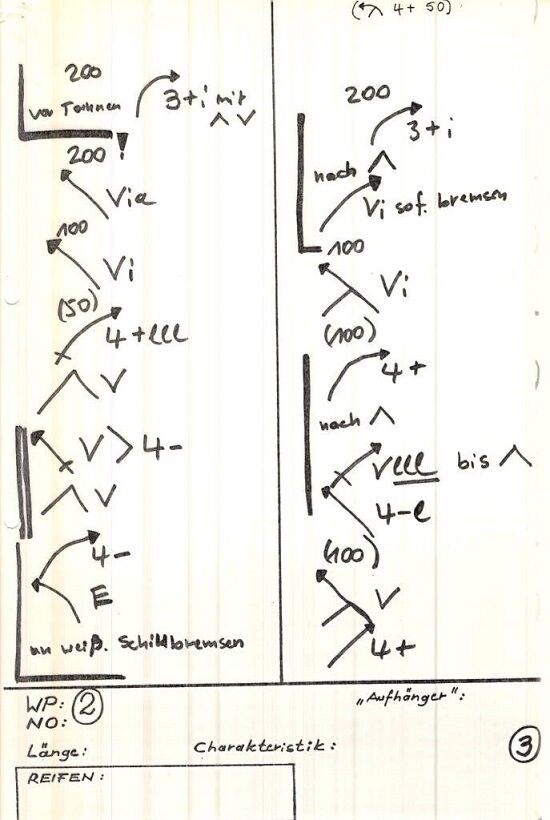 (↖ 4 + 50)
200
vor Tonnen
3+i mit
∧ V
200 !
Via
100
Vi
(50)
4+lll
∧ V
V > 4-
∧ V
4-
E
weiß. Schildbremsen
200
3+i
nach ∧
Vi sof. bremsen
100
Vi
(100)
4+
nach ∧
Vlll bis ∧
4-l
(100)
V
4+
WP: 2
NO:
Länge:
Charakteristik:
REIFEN:
„Aufhänger":
3